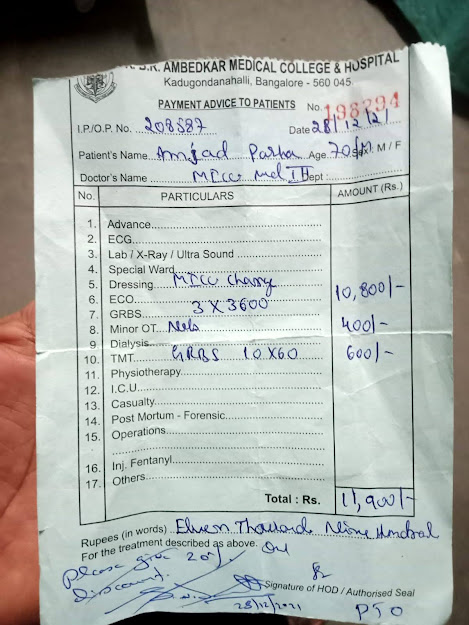 B.R. AMBEDKAR MEDICAL COLLEGE & HOSPITAL
Kadugondanahalli, Bangalore - 560 045.
PAYMENT ADVICE TO PATIENTS No. 198894
I.P./O.P. No. 208587 Date 28/12/21
Patient's Name Amjad Pasha Age 70/M Sex: M / F
Doctor's Name MICU Med III Dept :
No. PARTICULARS AMOUNT (Rs.)
1. Advance
2. ECG
3. Lab / X-Ray / Ultra Sound
4. Special Ward
5. Dressing MICU Charge
6. ECO 3 X 3600 10,800/-
7. GRBS
8. Minor OT Neb 400/-
9. Dialysis
10. TMT GRBS 10 X 60 600/-
11. Physiotherapy
12. I.C.U.
13. Casualty
14. Post Mortum - Forensic
15. Operations
16. Inj. Fentanyl
17. Others
Total : Rs. 11,900/-
Rupees (in words) Eleven Thousand Nine Hundred
For the treatment described as above.
Please give 20%
discount.
Signature of HOD / Authorised Seal
28/12/2021 PTO